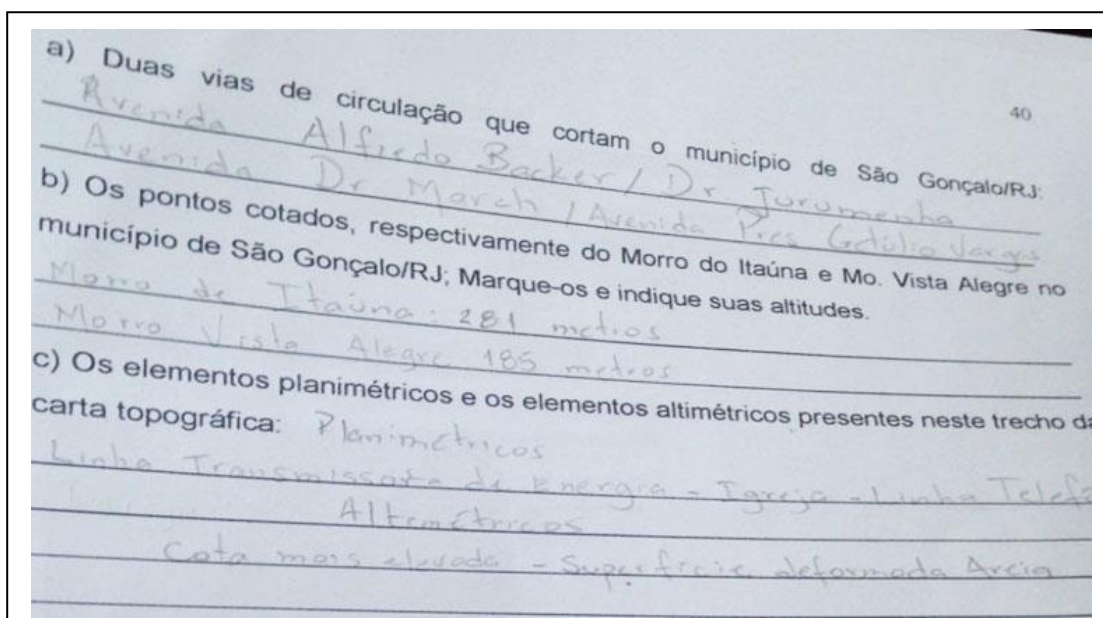 40
a) Duas vias de circulação que cortam o município de São Gonçalo/RJ:
Avenida Alfredo Backer / Dr. Jurumenha
Avenida Dr March / Avenida Pres Getúlio Vargas
b) Os pontos cotados, respectivamente do Morro do Itaúna e Mo. Vista Alegre no
município de São Gonçalo/RJ; Marque-os e indique suas altitudes.
Morro de Itaúna: 281 metros
Morro Vista Alegre 185 metros
c) Os elementos planimétricos e os elementos altimétricos presentes neste trecho da
carta topográfica: Planimétricos
Linha de Energia - Igreja - Linha Telefô
Altemétricos
Cota mais elevada - Superfície deformada Areia